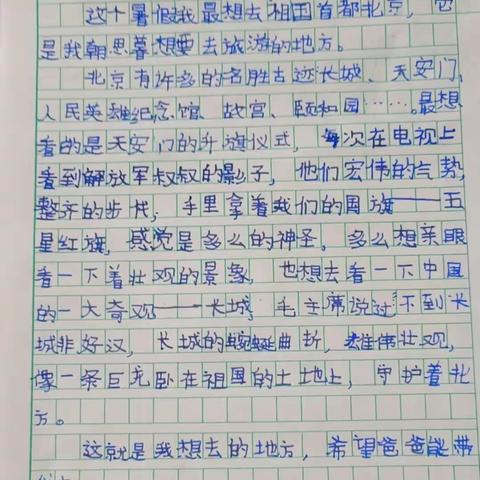 这个暑假我最想去祖国首都北京，它
是我朝思暮想要去旅游的地方。
北京有许多的名胜古迹长城、天安门，
人民英雄纪念馆、故宫、颐和园……最想
看的是天安门的升旗仪式，每次在电视上
看到解放军叔叔的影子，他们宏伟的气势，
整齐的步伐，手里拿着我们的国旗——五
星红旗，感觉是多么的神圣。多么想亲眼
看一下着壮观的景象，也想去看一下中国
的一大奇观——长城，毛主席说过不到长
城非好汉，长城的蜿蜒曲折，雄伟壮观，
像一条巨龙卧在祖国的土地上，守护着北
方。
这就是我想去的地方，希望爸爸能带